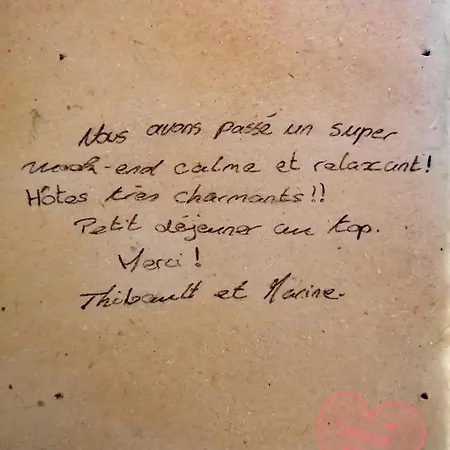 Nous avons passé un super
week-end calme et relaxant!
Hôtes très charmants!!
Petit déjeuner au top.
Merci!
Thibault et Marine.